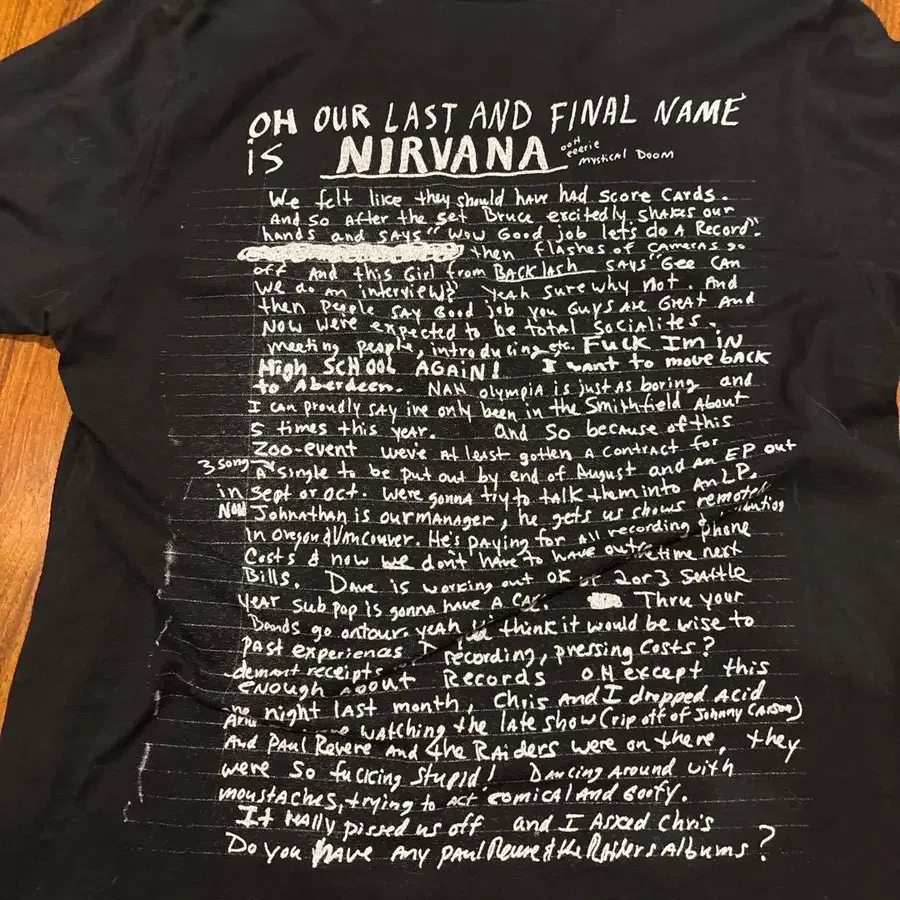 OH OUR LAST AND FINAL NAME
iS NIRVANA ooH eeerie mystical Doom
We felt like they should have had score cards.
And so after the set Bruce excitedly shakes our
hands and says "Wow Good job let's do A Record".
then flashes of cameras go
off And this Girl from BACKlash says "Gee CAN
we do an interview?" Yeah sure why not. And
then people say Good job you Guys are Great And
Now were expected to be total socialites.
meeting people, introducing etc. FUCK Im iN
High SCHOOL AGAIN! I want to move BACK
to Aberdeen. NAH olympia is just as boring and
I can proudly say ive only been in the Smithfield About
5 times this year. And so because of this
Zoo-event weve At least gotten a contract for
3 song
A single to be put out by end of August and an EP out
in Sept or oct. were gonna try to talk them into An LP.
Now Johnathan is our manager, he gets us shows remotely
in oregon & Vancouver. He's paying for all recording
phone
Costs & now we don't have to have
Bills. Dave is working out OK. 2 or 3 Seattle
year sub pop is gonna have a
Thru your
Bands go on tour. yeah think it would be wise to
past experiences
recording, pressing Costs?
demant receipts
enough about Records OH except this
night last month, Chris and I dropped Acid
watching the late show (rip off of Johnny Carson)
And Paul Revere And the Raiders were on there, they
were so fucking stupid! Dancing Around with
moustaches, trying to act comical And Goofy.
It really pissed us off and I Asked Chris
Do you have Any paul Revere & the Raiders Albums?